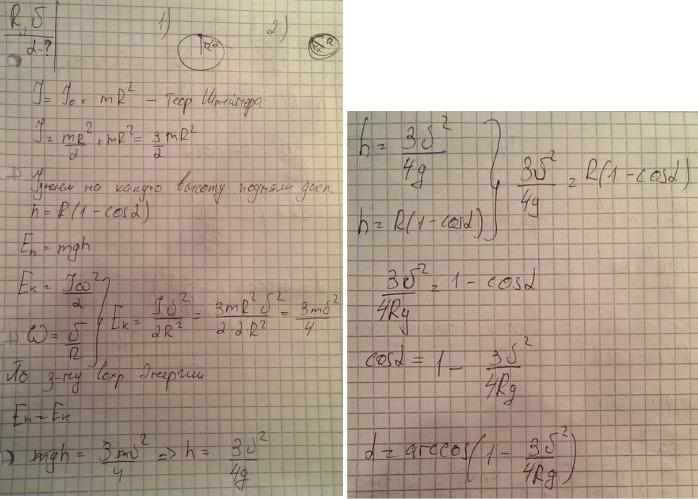 R, υ
α-?
1)
2)
J = J₀ + mR² – Теор Штейнера
J = mR²/2 + mR² = 3/2 mR²
Узнаем на какую высоту подняли диск.
h = R(1 - cosα)
Eп = mgh
Eк = Jω²/2
ω = υ/R
Eк = Jυ²/2R² = 3mR²υ²/2·2R² = 3mυ²/4
По з-ну сохр Энергии
Eп = Eк
mgh = 3mυ²/4 => h = 3υ²/4g
h = 3υ²/4g
h = R(1 - cosα)
3υ²/4g = R(1 - cosα)
3υ²/4Rg = 1 - cosα
cosα = 1 - 3υ²/4Rg
α = arccos(1 - 3υ²/4Rg)